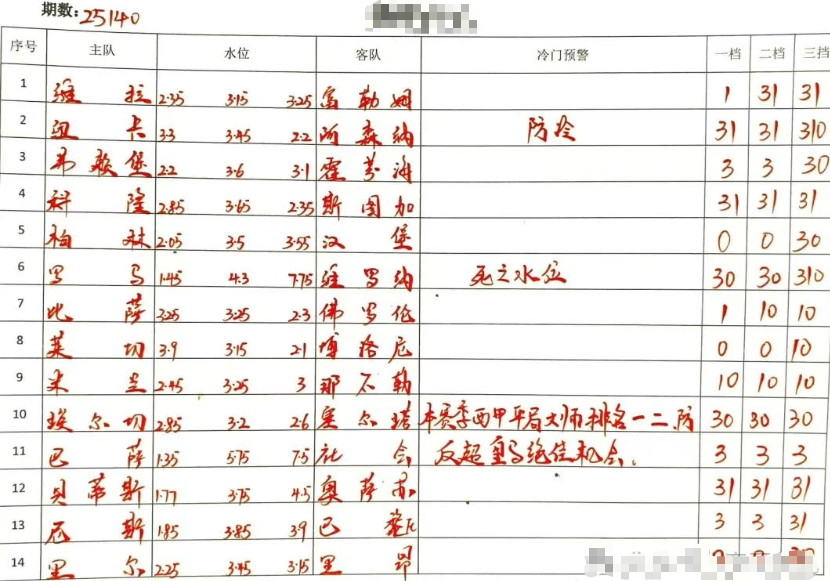 期数:25140
序号 主队 水位 客队 冷门预警 一档 二档 三挡
1 维拉 2.35 3.15 3.25 富勒姆 1 31 31
2 纽卡 3.3 3.45 2.2 阿森纳 防冷 31 31 310
3 弗赖堡 2.2 3.6 3.1 霍芬海 3 3 30
4 科隆 2.85 3.65 2.35 斯图加 31 31 31
5 柏林 2.05 3.5 3.55 汉堡 0 0 30
6 罗马 1.45 4.3 7.75 维罗纳 死亡水位 30 30 310
7 比萨 3.25 3.25 2.3 佛罗伦 1 10 10
8 莱切 3.9 3.15 2.1 博洛尼 0 0 10
9 米兰 2.45 3.25 3 那不勒 10 10 10
10 埃尔切 2.85 3.2 2.6 塞尔塔 本赛季西甲平局大师排名一二,防 30 30 30
11 巴萨 1.35 5.75 7.5 社会 反超皇马绝佳机会。 3 3 3
12 贝蒂斯 1.77 3.75 4.5 奥萨苏 31 31 31
13 尼斯 1.85 3.85 3.9 巴黎 3 3 31
14 里尔 2.25 3.45 3.15 里昂